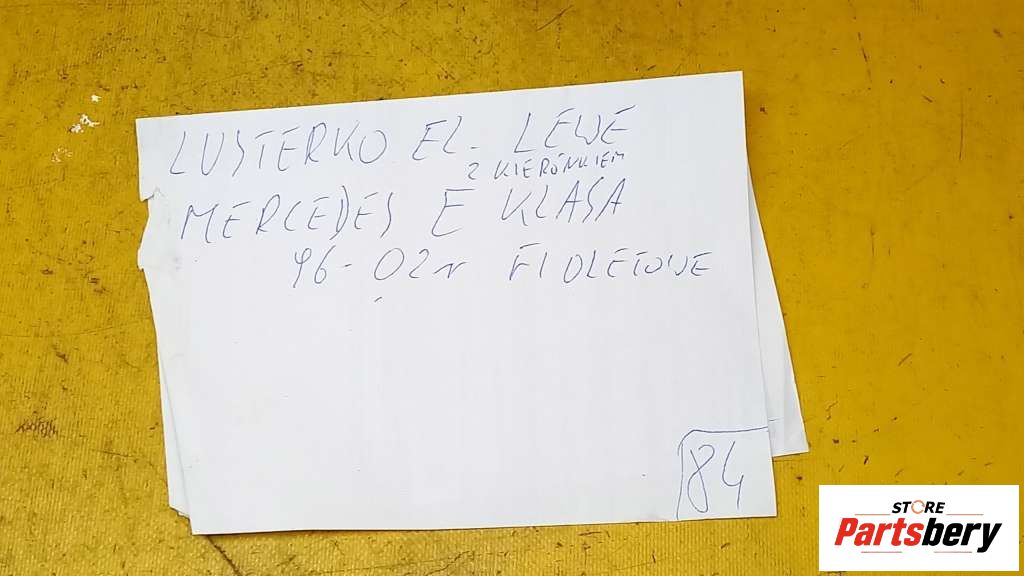 LUSTERKO EL. LEWE
Z KIERÓNKIEM
MERCEDES E KLASA
96-02r FIOLETOWE
84
STORE
Partsbery